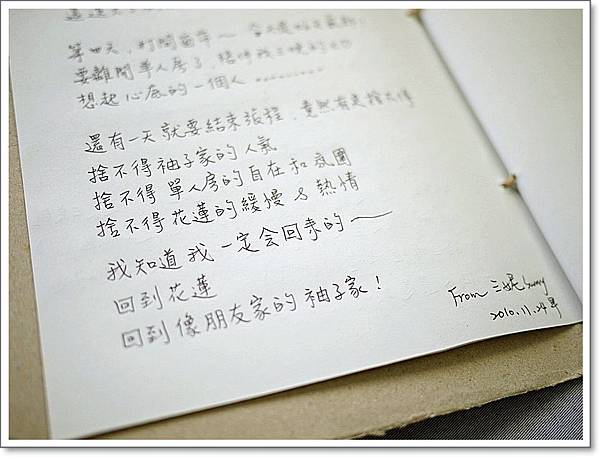 第四天,打開窗帘~
要離開單人房了,
想起心底的一個人.........
還有一天就要結束旅程,竟然有點捨不得
捨不得柚子家的人氣
捨不得單人房的自在和氛圍
捨不得花蓮的緩慢&熱情
我知道我一定会回來的~
回到花蓮
回到像朋友家的柚子家!
From
2010.11.24